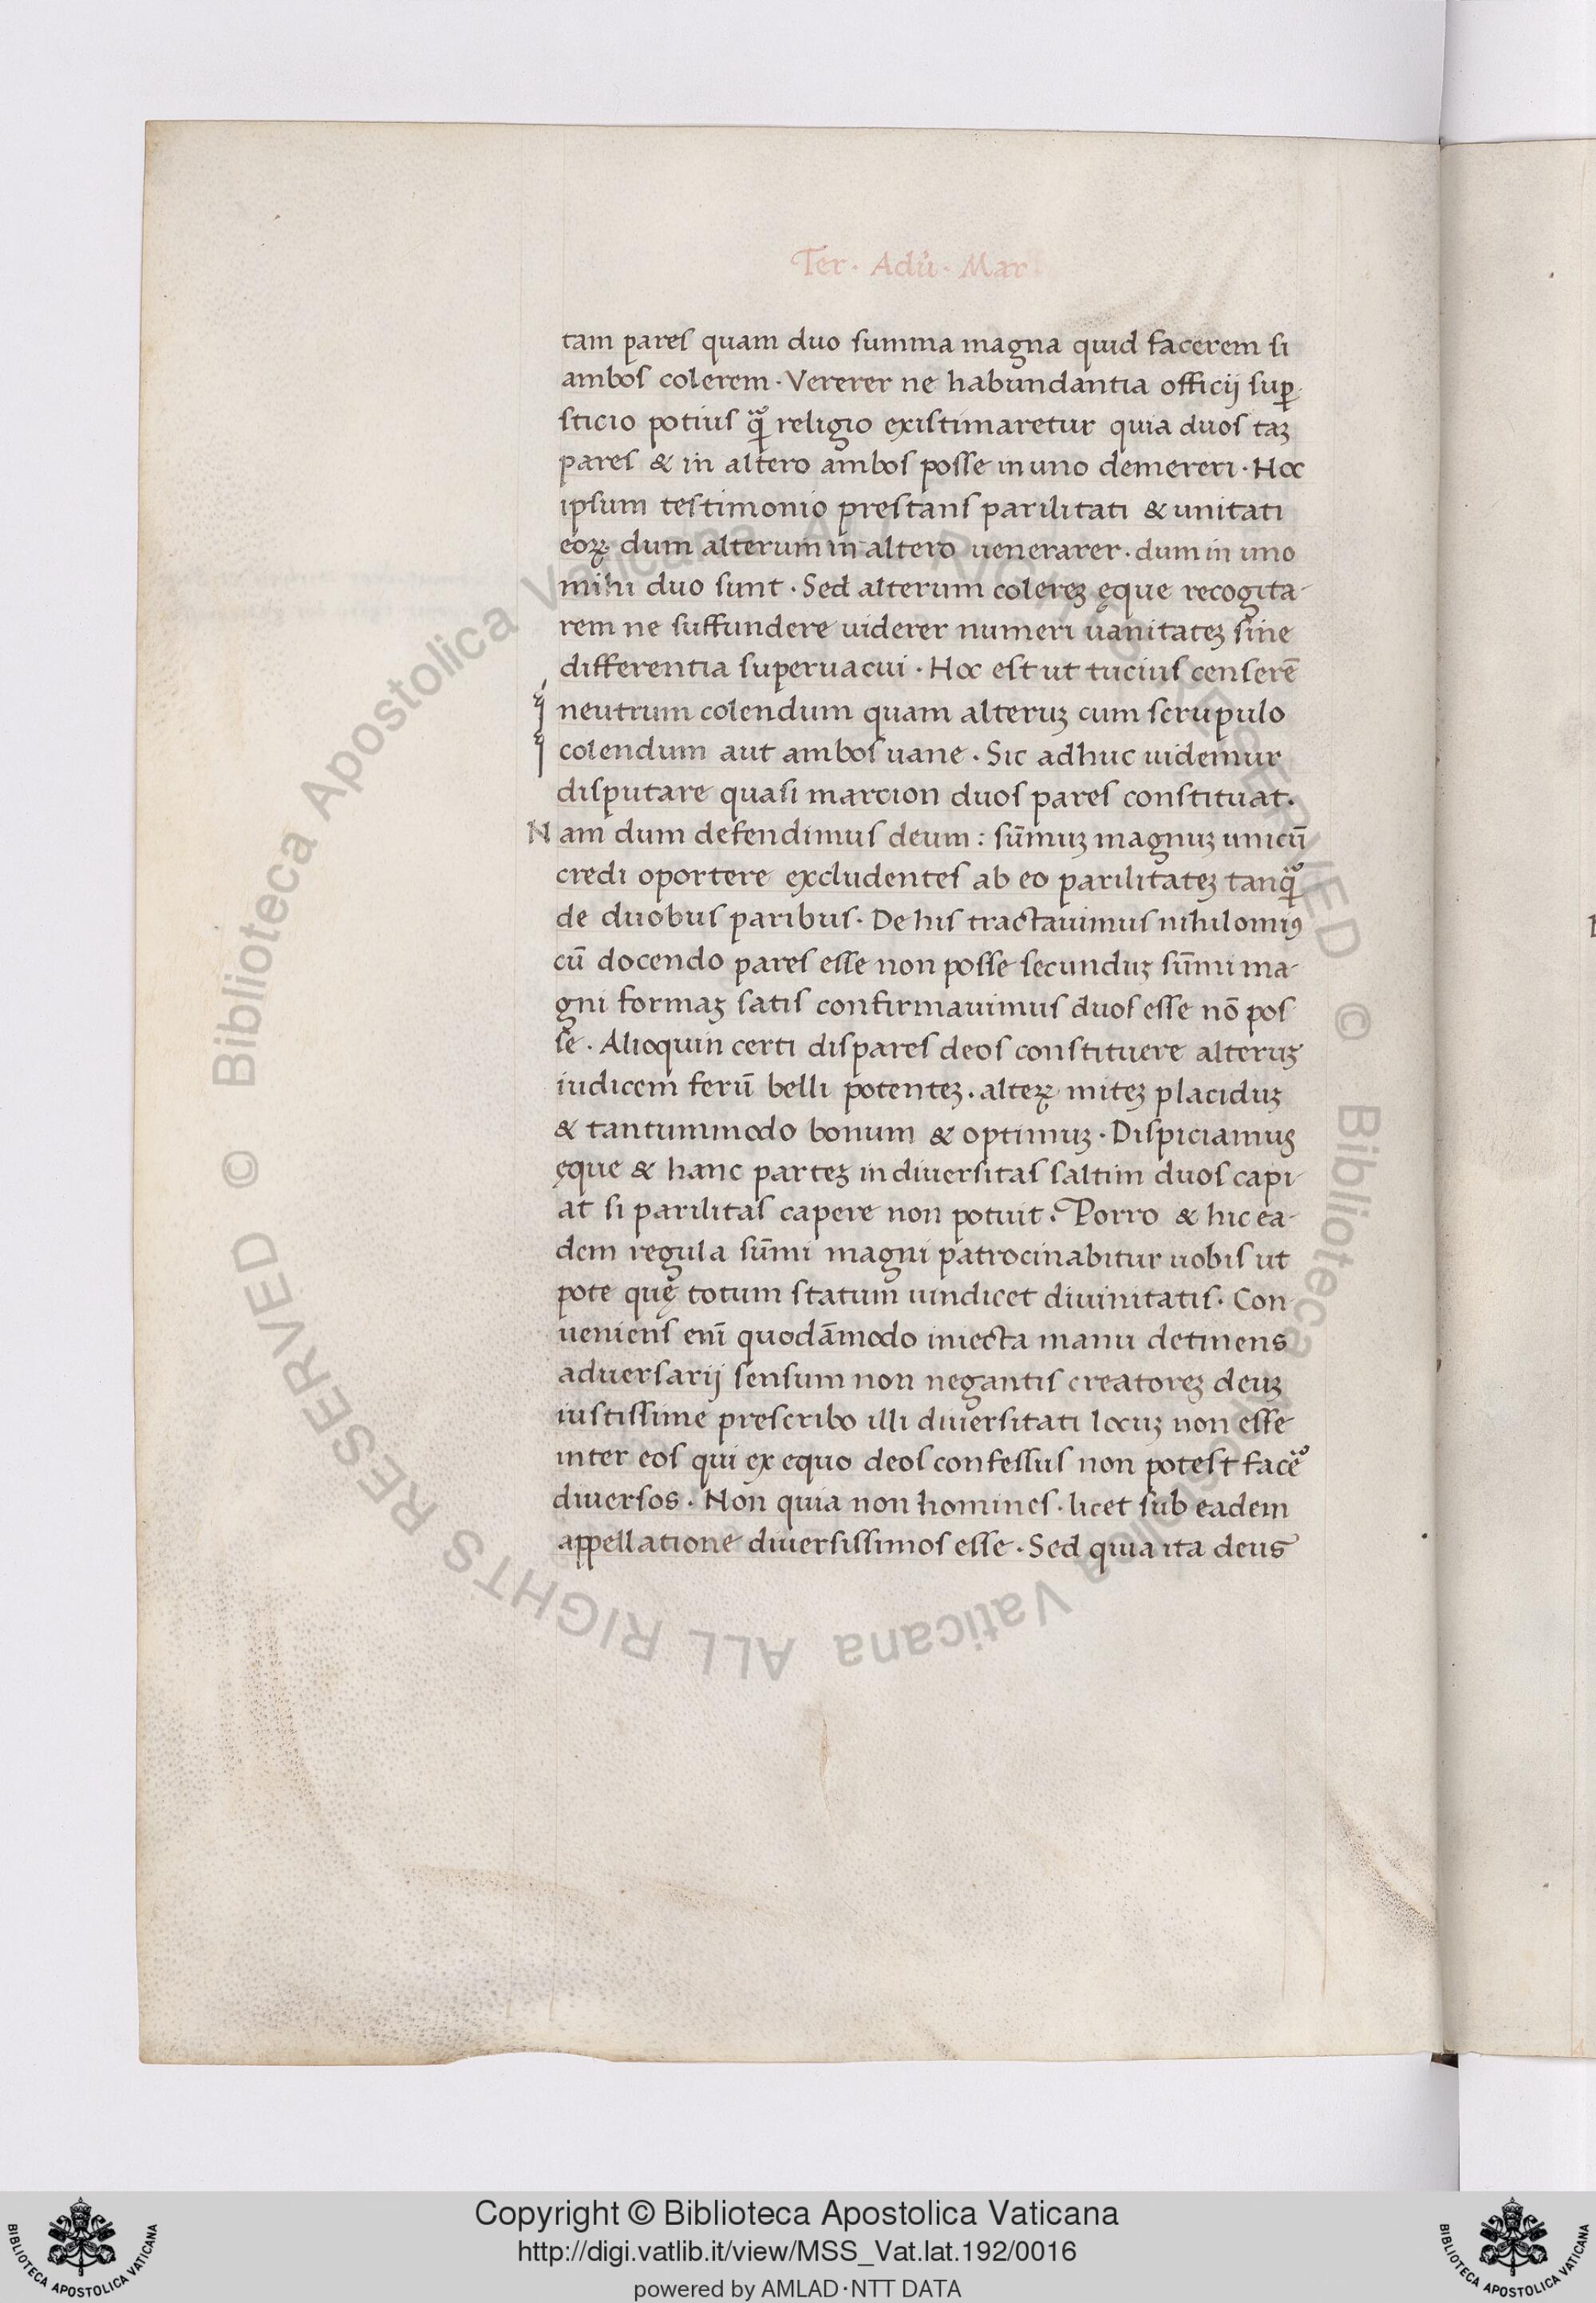 Ter · Adũ · Mar
tam pares quam duo summa magna quid facerem si
ambos colerem · Vererer ne habundantia officij suꝑ-
sticio potius qᷓ religio existimaretur quia duos taꝫ
pares & in altero ambos posse in uno demereri · Hoc
ipsum testimonio prestans parilitati & unitati
eoꝝ dum alterum in altero uenerarer · dum in uno
mihi duo sunt · Sed alterum colereꝫ ęque recogita-
rem ne suffundere uiderer numeri uanitateꝫ sine
differentia superuacui · Hoc est ut tucius censerē
neutrum colendum quam alteruꝫ cum scrupulo
colendum aut ambos uane · Sic adhuc uidemur
disputare quasi marcion duos pares constituat.
Nam dum defendimus deum : sūmuꝫ magnuꝫ unicū
credi oportere excludentes ab eo parilitateꝫ tanqᷓ
de duobus paribus · De his tractauimus nihilomiꝰ
cū docendo pares esse non posse secunduꝫ sūmi ma-
gni formaꝫ satis confirmauimus duos esse nō pos
se · Alioquin certi dispares deos constituere alteruꝫ
iudicem ferū belli potenteꝫ · alteꝝ miteꝫ placiduꝫ
& tantummodo bonum & optimuꝫ · Dispiciamus
ęque & hanc parteꝫ in diuersitas saltim duos capi-
at si parilitas capere non potuit · Porro & hic ea-
dem regula sūmi magni patrocinabitur uobis ut
pote quę totum statum uindicet diuinitatis · Con
ueniens enī quodāmodo iniecta manu detinens
aduersarij sensum non negantis creatoreꝫ deuꝫ
iustissime prescribo illi diuersitati locuꝫ non esse
inter eos qui ex equo deos confessus non potest facẽ
diuersos · Non quia non homines · licet sub eadem
appellatione diuersissimos esse · Sed quia ita deus
© Biblioteca Apostolica Vaticana ALL RIGHTS RESERVED © Biblioteca Apostolica Vaticana ALL RIGHTS RESERVED
Copyright © Biblioteca Apostolica Vaticana
http://digi.vatlib.it/view/MSS_Vat.lat.192/0016
powered by AMLAD·NTT DATA
BIBLIOTECA APOSTOLICA VATICANA
BIBLIOTECA APOSTOLICA VATICANA